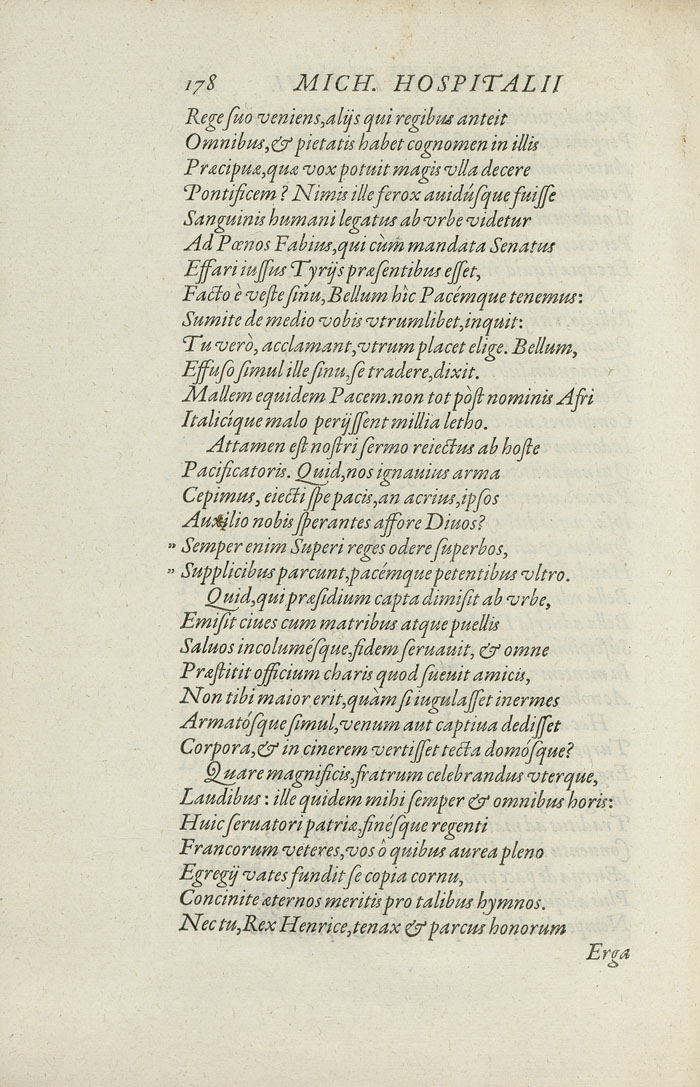 178 MICH. HOSPITALII
Rege ſuo veniens, alijs qui regibus anteit
Omnibus, & pietatis habet cognomen in illis
Præcipuæ, quæ vox potuit magis vlla decere
Pontificem? Nimis ille ferox auidúſque fuiſſe
Sanguinis humani legatus ab vrbe videtur
Ad Pœnos Fabius, qui cùm mandata Senatus
Effari iuſſus Tyrijs præſentibus eſſet,
Facto è veſte ſinu, Bellum hîc Pacémque tenemus:
Sumite de medio vobis vtrumlibet, inquit:
Tu verò, acclamant, vtrum placet elige. Bellum,
Effuſo ſimul ille ſinu, ſe tradere, dixit.
Mallem equidem Pacem. non tot pòſt nominis Afri
Italicíque malo perijſſent millia letho.
Attamen eſt noſtri ſermo reiectus ab hoſte
Pacificatoris. Quid, nos ignauius arma
Cepimus, eiecti ſpe pacis, an acrius, ipſos
Auxilio nobis ſperantes affore Diuos?
" Semper enim Superi reges odere ſuperbos,
" Supplicibus parcunt, pacémque petentibus vltro.
Quid, qui præſidium capta dimiſit ab vrbe,
Emiſit ciues cum matribus atque puellis
Saluos incoluméſque, fidem ſeruauit, & omne
Præſtitit officium charis quod ſueuit amicis,
Non tibi maior erit, quàm ſi iugulaſſet inermes
Armatóſque ſimul, venum aut captiua dediſſet
Corpora, & in cinerem vertiſſet tecta domóſque?
Quare magnificis, fratrum celebrandus vterque,
Laudibus: ille quidem mihi ſemper & omnibus horis:
Huic ſeruatori patriæ, finéſque regenti
Francorum veteres, vos ô quibus aurea pleno
Egregij vates fundit ſe copia cornu,
Concinite æternos meritis pro talibus hymnos.
Nec tu, Rex Henrice, tenax & parcus honorum
Erga